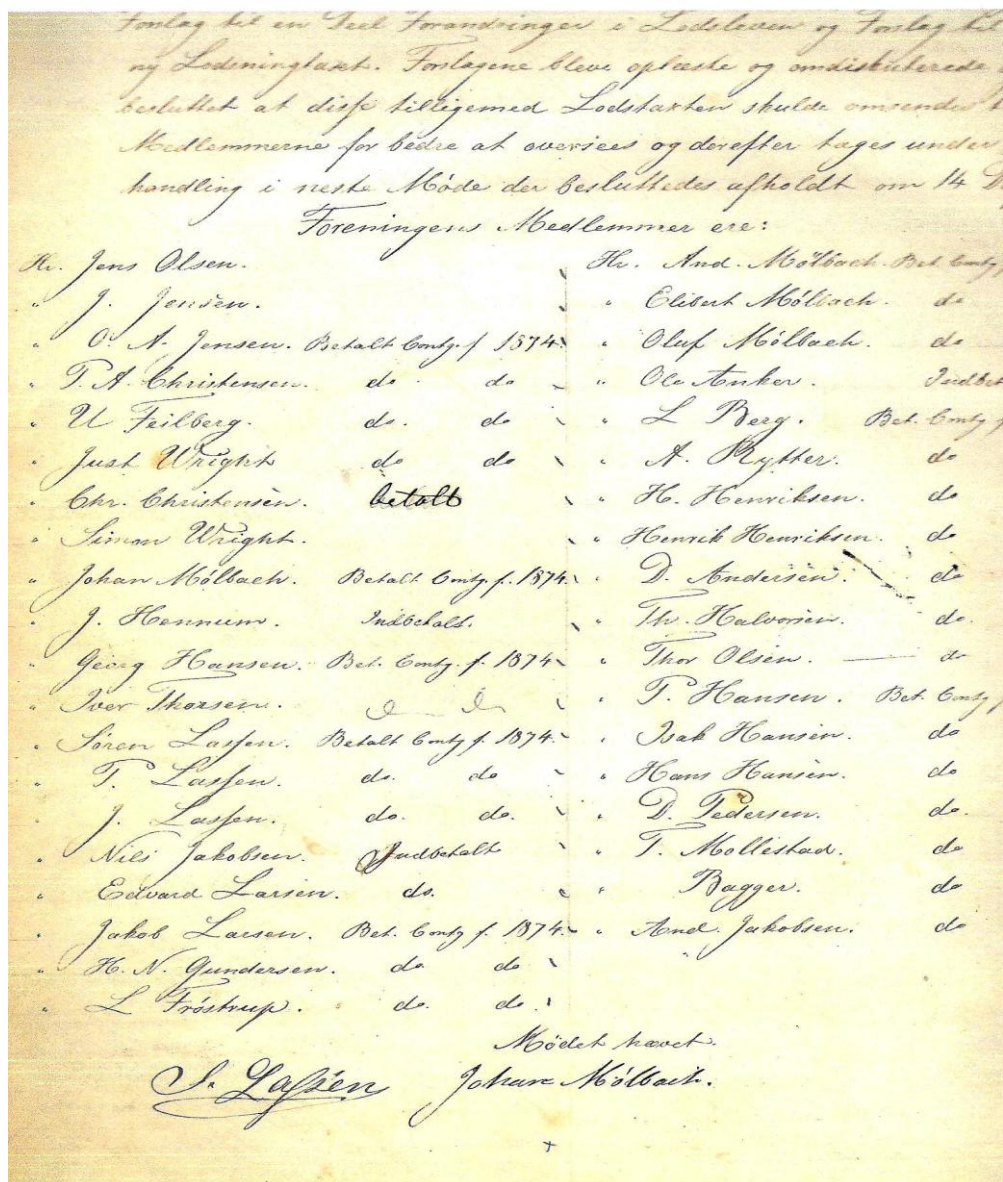 Forslag til en Deel Forandringer i Lodsloven og Forslag til
ny Lodsningtaxt. Forslagene bleve oplæste og omdiskuterede
besluttet at disse tilligemed Lodstaxten skulde omsendes
Medlemmerne for bedre at oversees og derefter tages under
handling i neste Møde der besluttedes afholdt om 14
Foreningens Medlemmer ere:
Hr. Jens Olsen.
" J. Jensen.
" O. A. Jensen. Betalt Contg. f 1874.
" T. A. Christensen. do. do
" U Feilberg. do. do
" Just Wright do do
" Chr. Christensen. betalt
" Simon Wright.
" Johan Mølbach. Betalt Contg. f. 1874.
" J. Hennum. Indbetalt.
" Georg Hansen. Bet. Contg. f. 1874
" Iver Thorsen.
" Sören Lassen. Betalt Contg f. 1874.
" T. Lassen. do. do
" J. Lassen. do. do.
" Niels Jakobsen. Indbetalt
" Edvard Larsen. do.
" Jakob Larsen. Bet. Contg f. 1874.
" H. N. Gundersen. do. do
" L Fröstrup. do. do.
Hr. And. Mölbach. Bet. Contg
" Elibert Mölbach. do
" Oluf Mölbach. do
" Ole Anker. Indbet
" L Berg. Bet. Contg f
" A. Rytter. do
" H. Henriksen. do
" Henrik Henriksen. do
" D. Andersen. do
" Th. Halvorsen. do.
" Thor Olsen. — do
" T. Hansen. Bet. Contg f
" Isak Hansen. do
" Hans Hansen. do
" D. Pedersen. do.
" T. Mollestad. do
" Bagger. do
" And. Jakobsen. do
Mödet hævet.
S. Lassen Johan Mölbach.